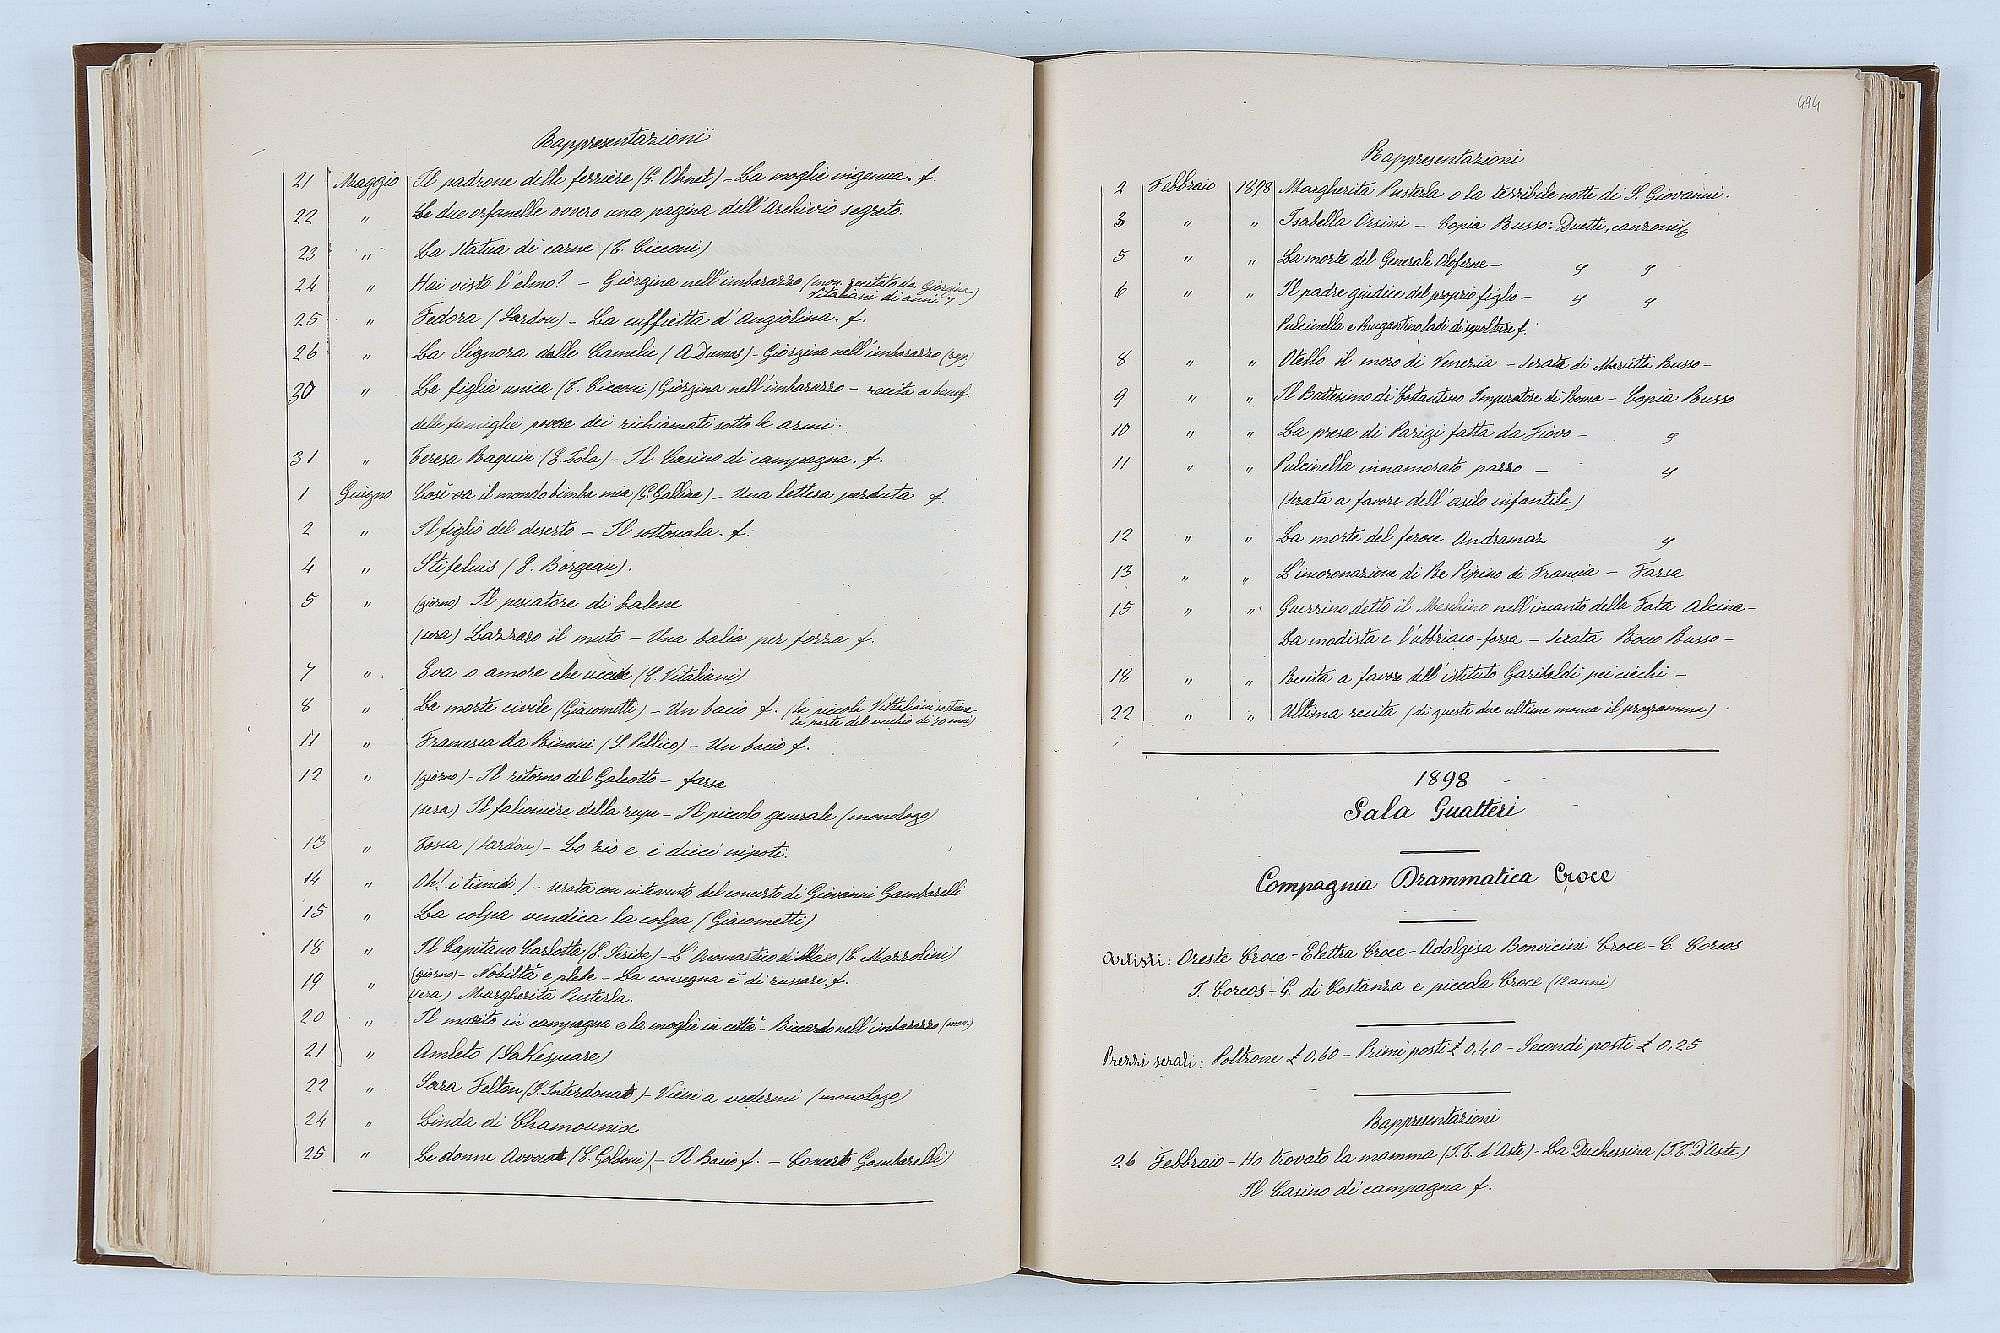 Rappresentazioni
21 Maggio Il padrone delle ferriere (G. Ohnet) - La moglie ingenua. f.
22 " Le due orfanelle ovvero una pagina dell'Archivio segreto.
23 " La statua di carne (T. Cicconi)
24 " Hai visto l'elmo? - Giorgina nell'imbarazzo (mon. recitato da Giorgina
Vitaliani di anni
25 " Fedora (Sardou) - La cuffietta d'Angiolina. f.
26 " La Signora dalle Camelie (A Dumas) - Giorgina nell'imbarazzo (rep)
30 " La figlia unica (T. Cicconi) Giorgina nell'imbarazzo - recita a benef.
delle famiglie povere dei richiamati sotto le armi.
31 " Teresa Raquin (E. Zola) - Il Casino di campagna. f.
1 Giugno Così va il mondo bimba mia (G. Gallina) - Una lettera perduta f
2 " Il figlio del deserto - Il sottoscala. f.
4 " Stifelius (E. Borgeau).
5 " (giorno) Il pescatore di balene
(sera) Lazzaro il muto - Una balia per forza f.
7 " Eva o amore che uccide (E. Vitaliani)
8 " La morte civile (Giacometti) - Un bacio f. (la piccola Vitaliani sostiene
la parte del vecchio di 70 anni)
11 " Francesca da Rimini (S. Pellico) - Un bacio f.
12 " (giorno) - Il ritorno del Galeotto - farsa
(sera) Il falconiere della rupe - Il piccolo generale (monologo)
13 " Tosca (Sardou) - Lo zio e i dieci nipoti.
14 " Oh! i timidi! - serata con intervento del concerto di Giovanni Gambarelli
15 " La colpa vendica la colpa (Giacometti)
18 " Il Capitano Carlotta (E. Scribe) - L'Onomastico di (C. Mazzolini)
19 " (giorno) - Nobiltà e plebe - La consegna è di russare. f.
(sera) Margherita Pusterla.
20 " Il marito in campagna e la moglie in città - Riccardo nell'imbarazzo (mon.)
21 " Amleto (Sakespeare)
22 " Sara Felton (S. Interdonato) - Vieni a vedermi (monologo)
24 " Linda di Chamounix
25 " Le donne Avvocate (C. Goldoni) - Il Bacio f. - Concerto Gambarelli)
494
Rappresentazioni
2 Febbraio 1898 Margherita Pusterla o la terribile notte di S. Giovanni.
3 " " Isabella Orsini - Copia Russo: Duetti, canzoni
5 " " La morte del Generale Oloferne - " "
6 " " Il padre giudice del proprio figlio - " "
Pulcinella e Burgantino ladi di sepolture f.
8 " " Otello il moro di Venezia - serata di Marietta Russo -
9 " " Il Battesimo di Costantino Imperatore di Roma - Copia Russo
10 " " La presa di Parigi fatta da Fiovo - "
11 " " Pulcinella innamorato pazzo - "
(serata a favore dell'asilo infantile)
12 " " La morte del feroce Andramaz "
13 " " L'incoronazione di Re Pipino di Francia - Farsa
15 " " Guerrino detto il Meschino nell'incanto della Fata Alcina -
La modista e l'ubbriaco - farsa - Serata Rocco Russo -
18 " " Recita a favore dell'istituto Garibaldi pei ciechi -
22 " " Ultima recita (di queste due ultime manca il programma)
1898
Sala Gualteri
Compagnia Drammatica Croce
Artisti: Oreste Croce - Elettra Croce - Adalgisa Bonvicini Croce - C. Corcos
T. Corcos - G. di Costanza e piccola Croce (12 anni)
Prezzi serali: Poltrone £ 0,60 - Primi posti £ 0,40 - Secondi posti £ 0,25
Rappresentazioni
26 Febbraio - Ho trovato la mamma (I.T. d'Aste) - La Duchessina (I T D'Aste)
Il Casino di campagna f.